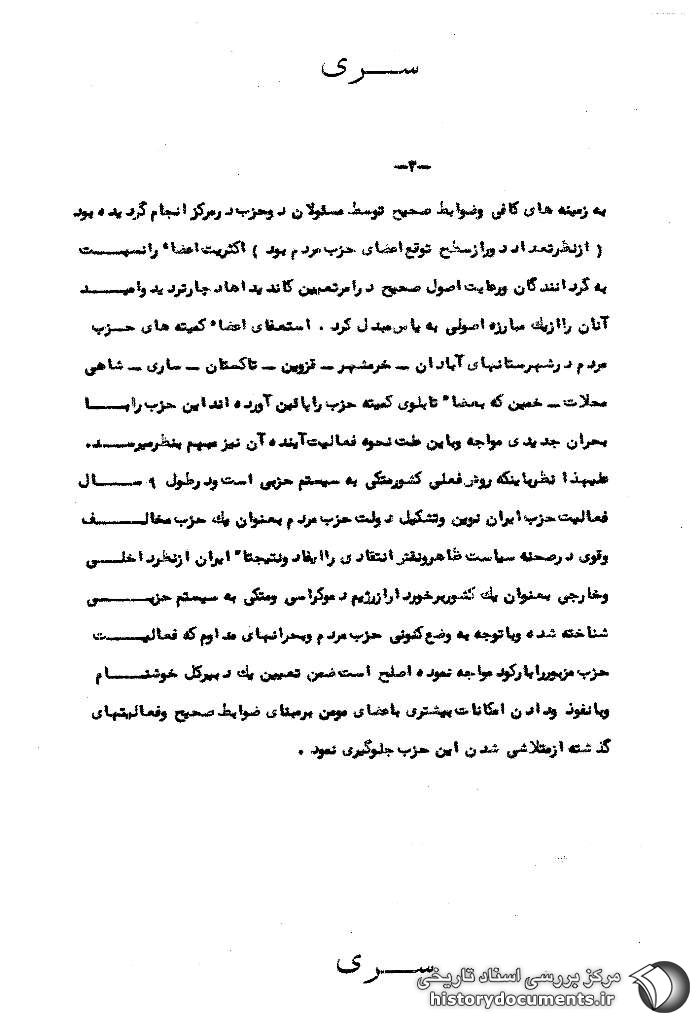 ســـری
-۳-
به زمینه های کافی وضوابط صحیح توسط مسئولان دوحزب درمرکز انجام گردیده بود
( ازنظرتعداد دورازسطح توقع اعضای حزب مردم بود ) اکثریت اعضاء رانسبـــــت
به گردانندگان ورعایت اصول صحیح درامرتعیین کاندیداهاد چارتردید وامیـــد
آنان راازیك مبارزه اصولی به یاس مبدل کرد . استعفای اعضاء کمیته های حـــزب
مردم درشهرستانهای آبادان ــ خرمشهر ــ قزوین ــ تاکستان ــ ساری ــ شاهی
محلات ــ خمین که بعضاء تابلوی کمیته حزب راپائین آورده اند این حزب رابـــا
بحران جدیدی مواجه وباین علت نحوه فعالیت آینده آن نیز مبهم بنظرمیرســـد.
علیهذا نظرباینکه روش فعلی کشورمتکی به سیستم حزبی است ودرطول ۹ ســـال
فعالیت حزب ایران نوین وتشکیل دولت حزب مردم بعنوان یك حزب مخالـــف
وقوی درصحنه سیاست ظاهرونقش انتقادی راایفاد ونتیجتاً ایران ازنظرداخلـــی
وخارجی بعنوان یك کشوربرخوردارازرژیم دموکراسی ومتکی به سیستم حزبـــی
شناخته شده وباتوجه به وضع کنونی حزب مردم وبحرانهای مداوم که فعالیـــت
حزب مزبوررابارکود مواجه نموده اصلح است ضمن تعیین یك دبیرکل خوشنـــام
وبانفوذ ودادن امکانات بیشتری باعضای مومن برمبنای ضوابط صحیح وفعالیتهای
گذشته ازمتلاشی شدن این حزب جلوگیری نمود .
ســـری
مرکز بررسی اسناد تاریخی
historydocuments.ir